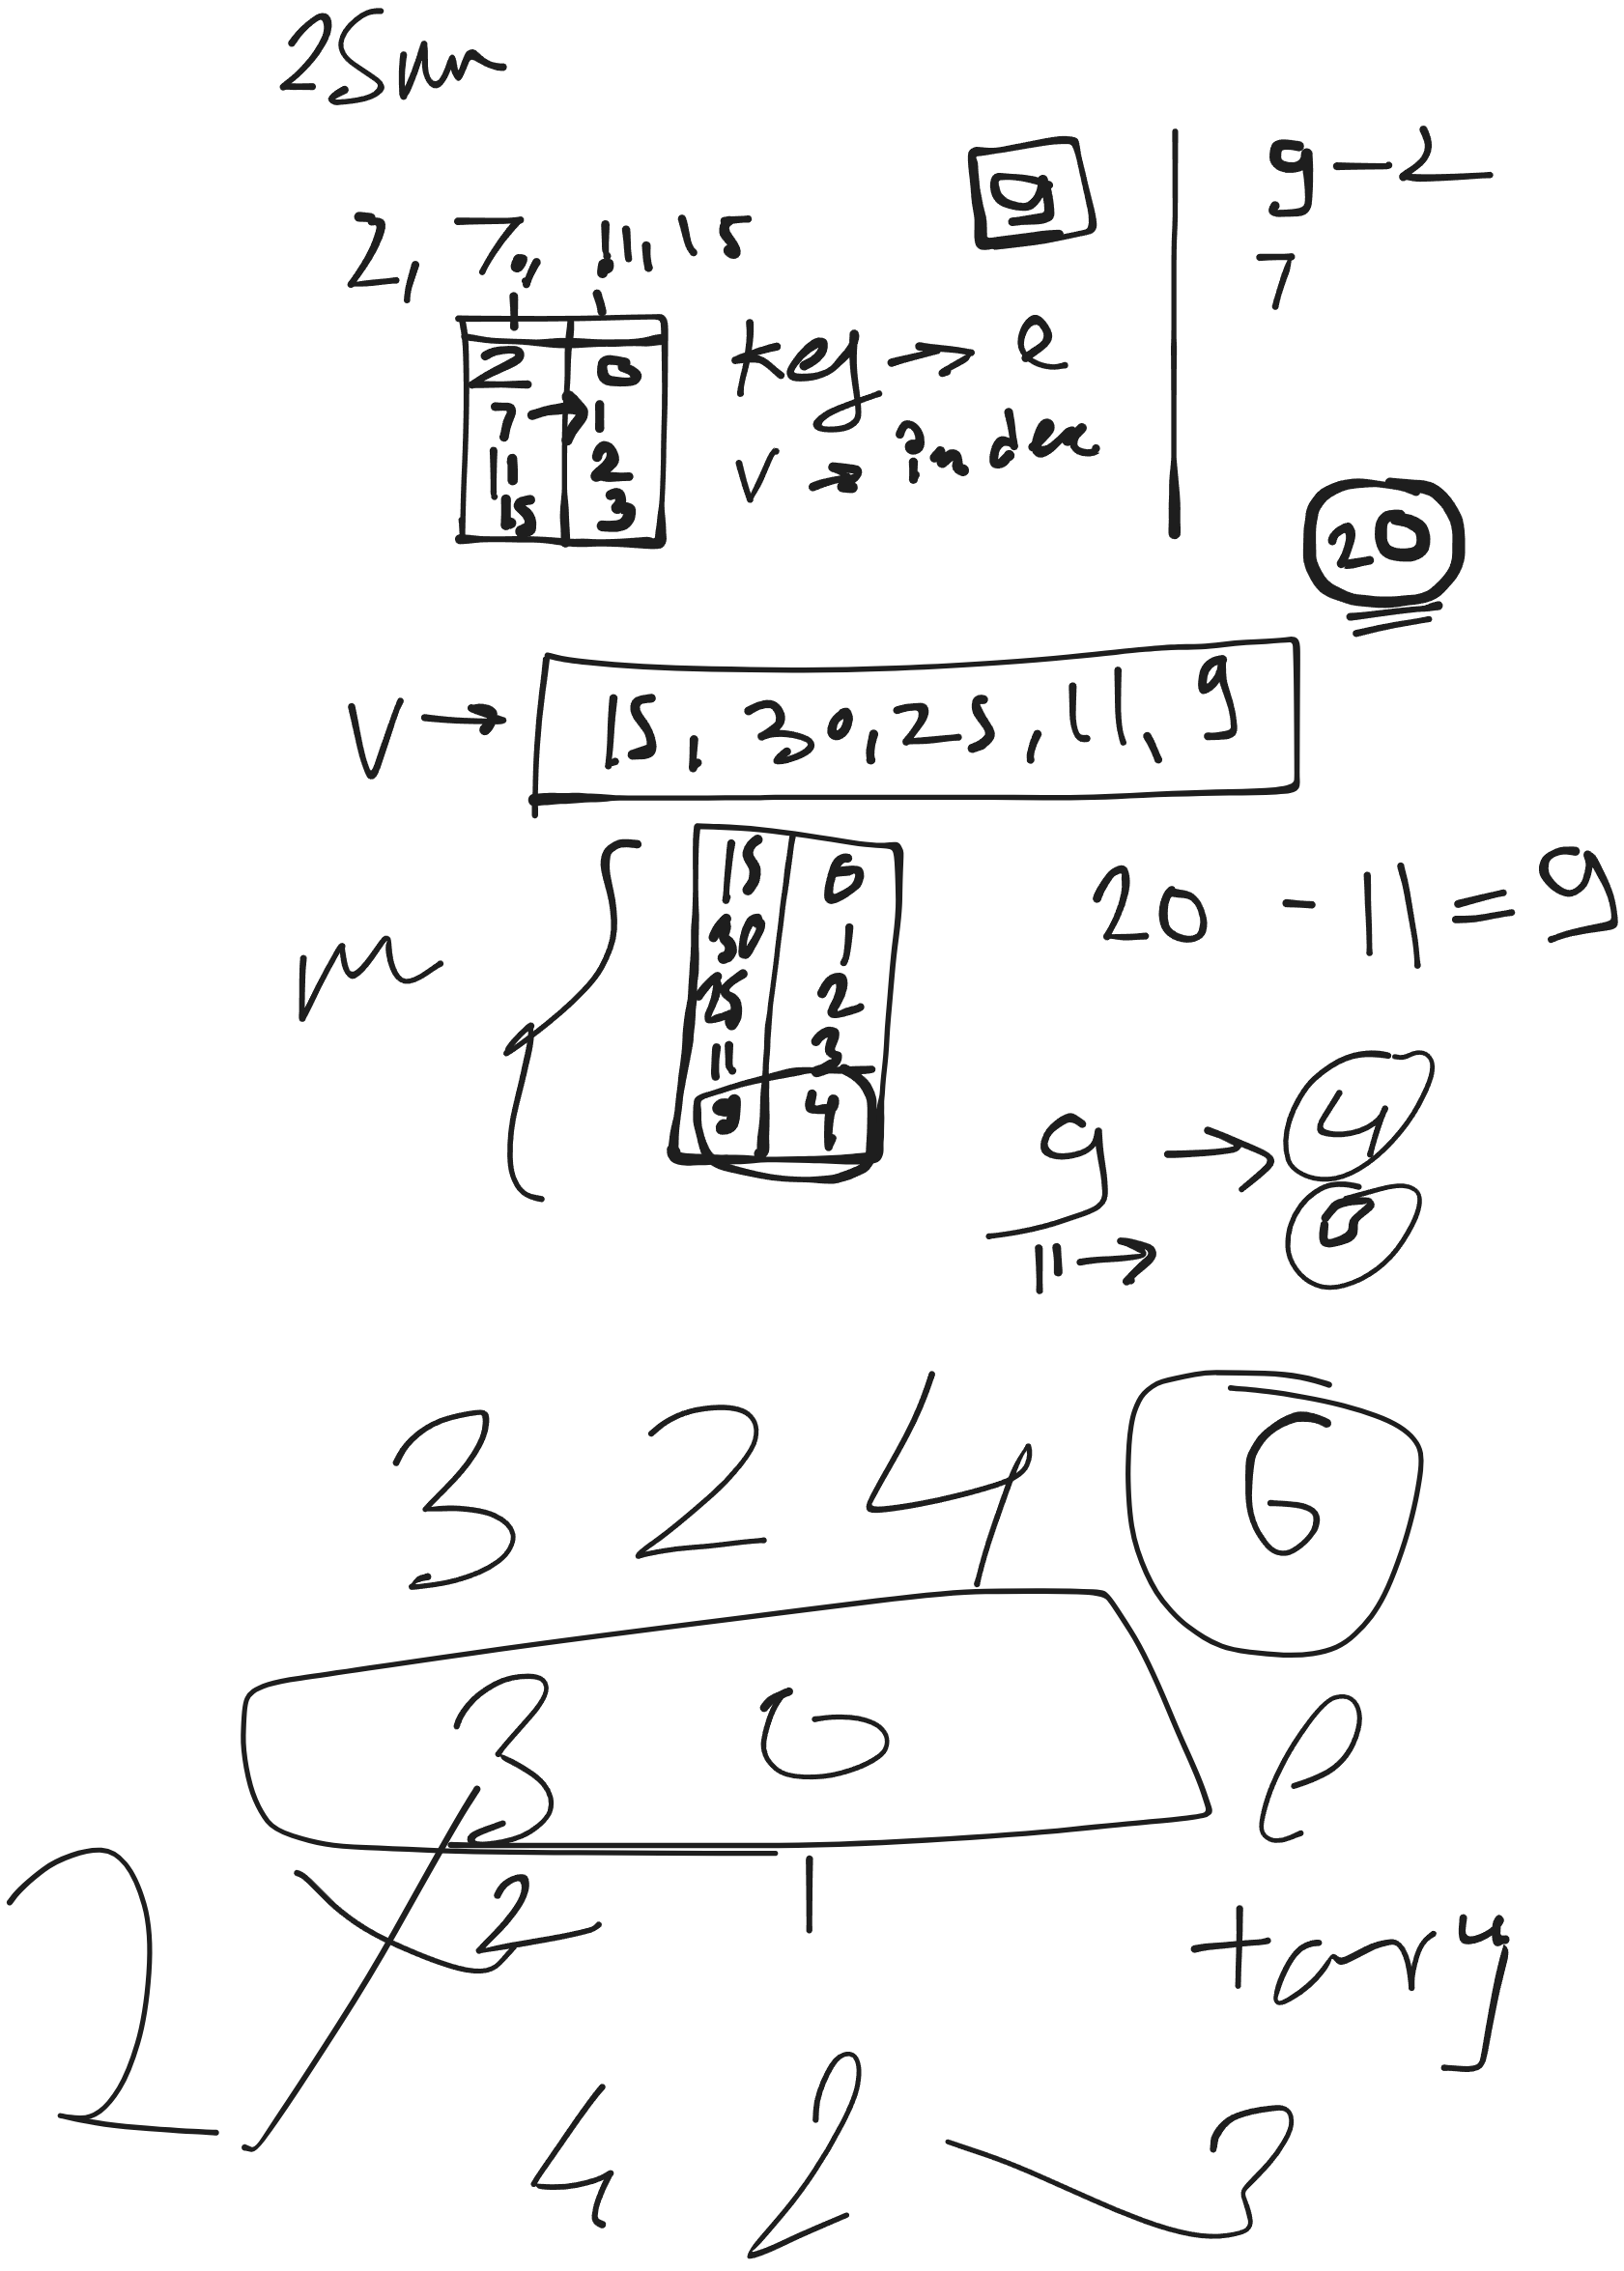 2Sum
9
9-2
2, 7, 11, 15
7
2 0
7 → 1
11 2
15 3
key → e
v = index
20
V → 15, 20, 25, 11, 9
m
15 0
20 1
25 2
11 3
9 4
20 - 11 = 9
9 → 4
11 →
3 2 4 6
3 0
e
2
2 1
4 2